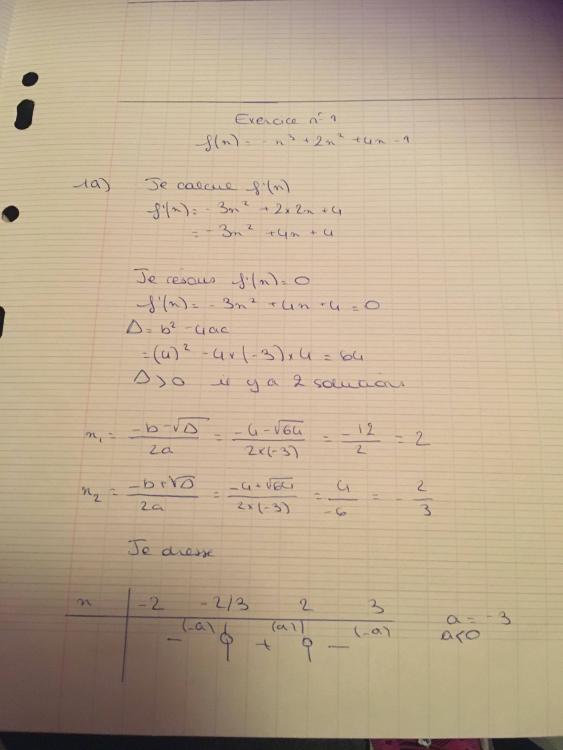 Exercice n° 1
f(x) = - x³ + 2x² + 4x - 1
1a) Je calcule f'(x)
f'(x) = - 3x² + 2 x 2x + 4
= - 3x² + 4x + 4
Je résous f'(x) = 0
f'(x) = - 3x² + 4x + 4 = 0
Δ = b² - 4ac
= (4)² - 4 x (-3) x 4 = 64
Δ > 0 il y a 2 solutions
x₁ = (-b - √Δ)/(2a) = (-4 - √64)/(2 x (-3)) = (-12)/2 = 2
x₂ = (-b + √Δ)/(2a) = (-4 + √64)/(2 x (-3)) = 4/(-6) = - 2/3
Je dresse
x -2 -2/3 2 3 a = -3
- (-a) 0 + (a) 0 - (-a) a<0